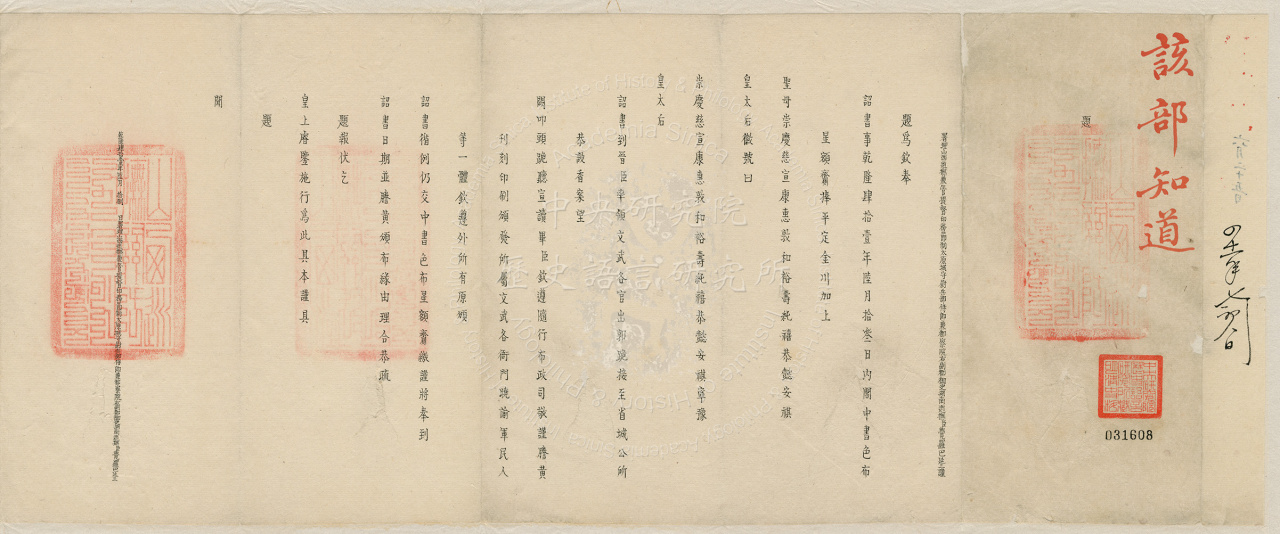 該部知道
題
031608
題為欽奉
詔書事乾隆肆拾壹年陸月拾叁日內閣中書色布
星額齎捧平定金川加上
聖母崇慶慈宣康惠敦和裕壽純禧恭懿安祺
皇太后徽號曰
崇慶慈宣康惠敦和裕壽純禧恭懿安祺寧豫
皇太后
詔書到晉臣率領文武各官出郭跪接至省城公所
恭設香案望
闕叩頭跪聽宣讀畢臣欽遵隨行布政司敬謹謄黃
刊刻印制頒發所屬文武各衙門曉諭軍民人
等一體欽遵外所有原頒
詔書循例仍交中書色布星額齎繳謹將奉到
詔書日期並謄黃頒布緣由理合恭疏
題報伏乞
皇上睿鑒施行為此具本謹具
題
聞
中央研究院
歷史語言研究所